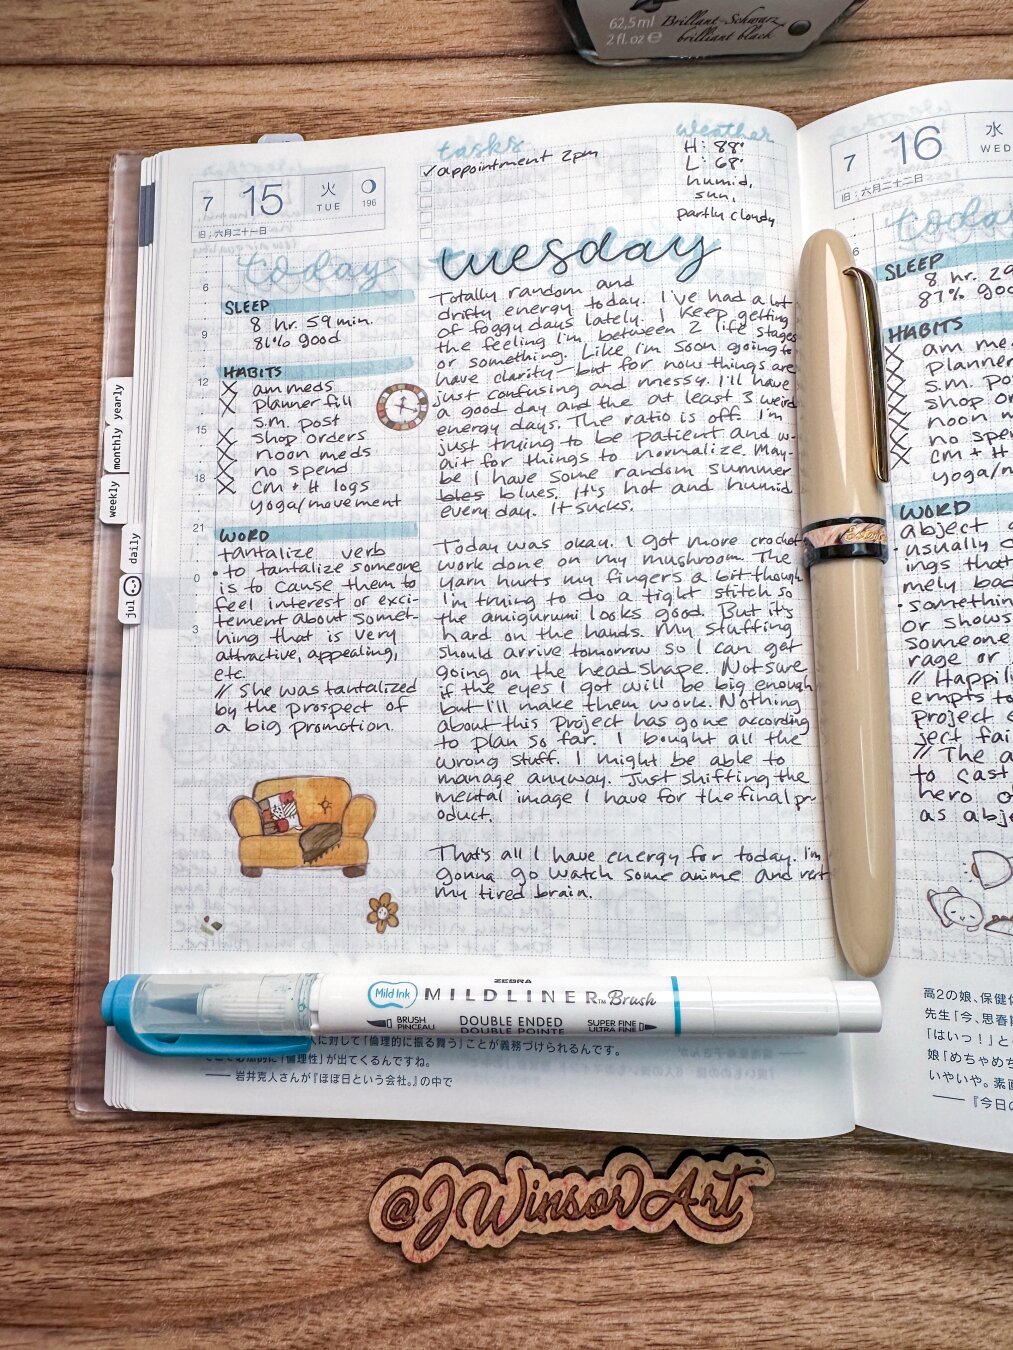 62,5 ml Brillant-Schwarz
2 fl. oz e brilliant black
tasks
✓ appointment 2pm
weather
H: 88°
L: 68°
humid,
sun,
partly cloudy
7 15 火
TUE 196
旧:六月二十一日
today
6
9
12
15
18
21
0
3
SLEEP
8 hr. 59 min.
81% good
HABITS
X am meds
X planner fill
s.m. post
X shop orders
X noon meds
X no spend
X cm + H logs
yoga/movement
WORD
tantalize verb
• to tantalize someone
is to cause them to
feel interest or exci-
tement about somet-
hing that is very
attractive, appealing,
etc.
// She was tantalized
by the prospect of
a big promotion.
tuesday
Totally random and
drifty energy today. I've had a lot
of foggy days lately. I keep getting
the feeling I'm between 2 life stages
or something. Like I'm soon going to
have clarity—but for now things are
just confusing and messy. I'll have
a good day and the at least 3 weird
energy days. The ratio is off. I'm
just trying to be patient and w-
ait for things to normalize. May-
be I have some random summer
bles blues. It's hot and humid
every day. It sucks.
Today was okay. I got more crochet
work done on my mushroom. The
yarn hurts my fingers a bit though
I'm trying to do a tight stitch so
the amigurumi looks good. But it's
hard on the hands. My stuffing
should arrive tomorrow so I can get
going on the head shape. Not sure
if the eyes I got will be big enough
but I'll make them work. Nothing
about this project has gone according
to plan so far. I bought all the
wrong stuff. I might be able to
manage anyway. Just shifting the
mental image I have for the final pr-
oduct.
That's all I have energy for today. I'm
gonna go watch some anime and rest
my tired brain.
7 16 水
WED
旧:六月二十二日
today
6
SLEEP
8 hr. 29
87% goo
HABITS
X am me
X planner
X s.m. po
X shop or
X noon m
X no spe
X cm + H
yoga/m
WORD
abject
• usually
ings that
mely bad
• somethin
or shows
someone
rage or
// Happil
empts to
project
ject fai
// The a
to cast
hero o
as abj
yearly
monthly
weekly
daily
jul
ZEBRA
Mild Ink MILDLINER™ Brush
BRUSH DOUBLE ENDED SUPER FINE
PINCEAU DOUBLE POINTE ULTRA FINE
人に対して「倫理的に振る舞う」ことが義務づけられるんです。
「倫理性」が出てくるんですね。
── 岩井克人さんが『ほぼ日という会社。』の中で
高2の娘、保健体
先生「今、思春
「はいっ!」と
娘「めちゃめち
いやいや。素直
──『今日の
@JWinsorArt